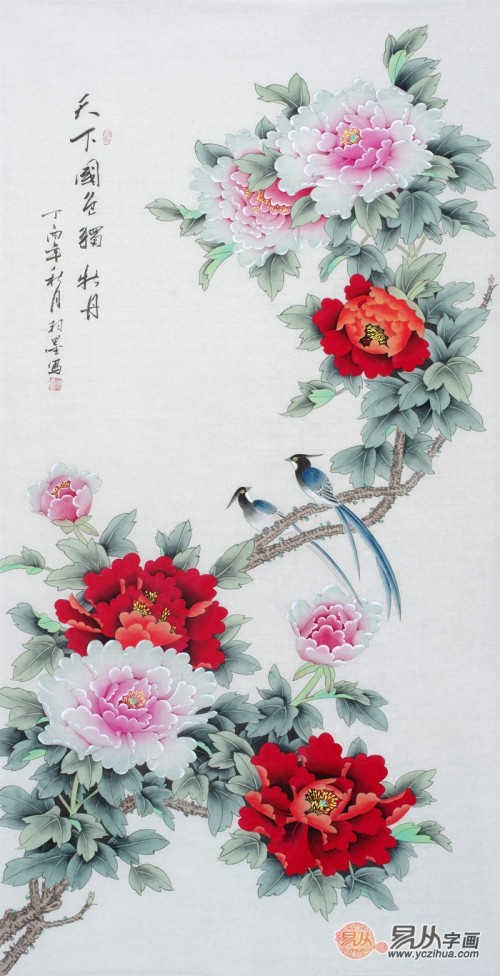 天下國色獨牡丹
丁酉年秋月羽墨寫
易从字画
www.yczihua.com